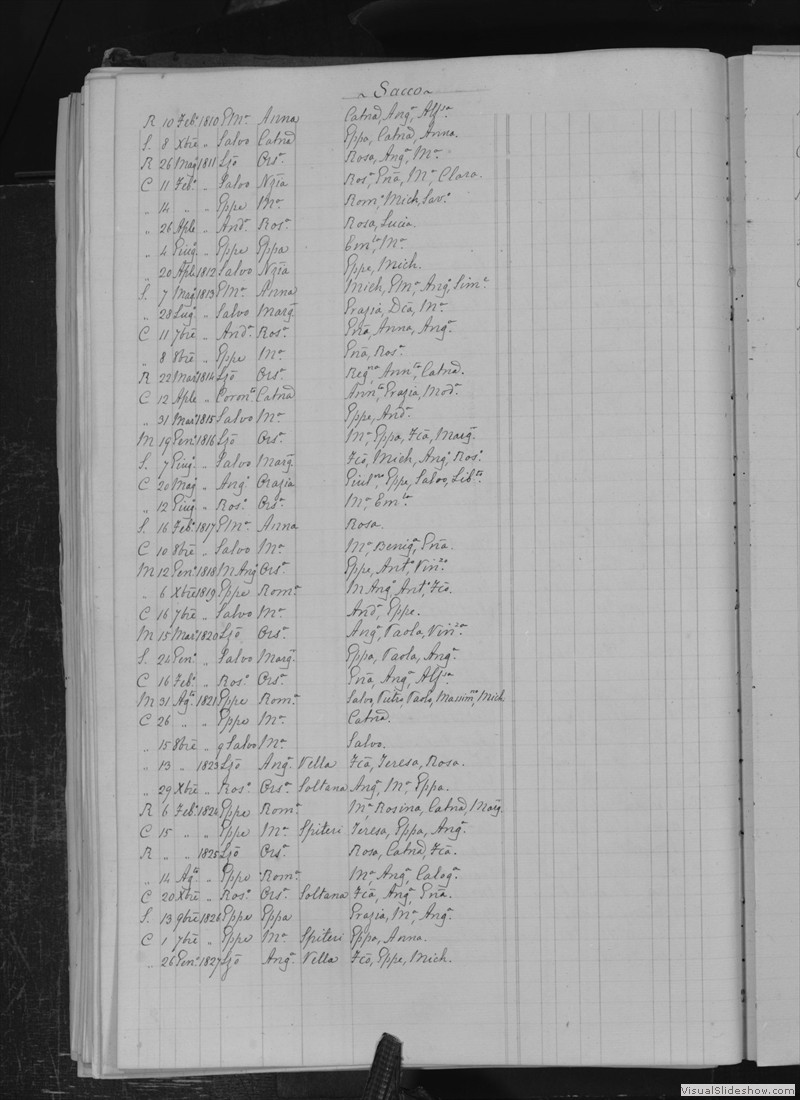 ~ Sacco ~
R 10 Feb.º 1810 Eme. Anna Catnd, Angª, Alfsª
S. 8 Xbre " Salvo Catnd Eppa, Catnd, Anna.
R 26 Mag 1811 Ljō Orsª. Rosa, Angª, Mª
C 11 Feb.º " Salvo Nzia Rosª, Enā, Mª, Clara.
" 14 " " Eppe Mª Romº, Mich, Savº
" 26 Aple " Andª Rosª. Rosa, Lucia.
" 4 Eiugº " Eppe Eppa Emlª, Mª.
" 20 Aple 1812 Salvo Nzia Eppe, Mich.
S. 7 Mag 1813 Eme. Anna Mich, Eme, Angº, Simᵉ
" 28 Lugº " Salvo Margª Erazia, Dcā, Mª.
C 11 7bre " Andª Rosª Enā, Anna, Angª.
" 8 8bre " Eppe Mª Enā, Rosª.
R 22 Mar 1814 Ljō Orsª. Regnª, Anntª, Catnd.
C 12 Aple " Coronta Catnd Anntª, Erazia, Modª.
" 31 Mar 1815 Salvo Mª Eppe, Andª.
M 19 Eenº 1816 Ljō Orsª. Mª, Eppa, Fcā, Margª.
S. 7 Eiugº " Salvo Margª Fcō, Mich, Angº, Rosº.
C 20 Mag " Angº Orazia Eiulnª, Eppe, Salvo, Libtª.
" 12 Eiugº " Rosº Orsª. Mª, Emlª
S. 16 Feb.º 1817 Eme. Anna Rosa.
C 10 8bre " Salvo Mª Mª, Benigª, Enā.
M 12 Eenº 1818 M Angº Orsª. Eppe, Antº, Vinzº.
" 6 Xbre 1819 Eppe Romª M Angº, Antº, Fcō.
C 16 7bre " Salvo Mª. Andª, Eppe.
M 15 Mar 1820 Ljō Orsª. Angª, Paola, Vinzª.
S. 24 Eenº " Salvo Margª Eppa, Paola, Angª.
C 16 Feb.º " Rosº Orsª. Enā, Angª, Alfsª
M 31 Agto 1821 Eppe Romª. Salvo, Pietro, Paolo, Massimº, Mich
C 26 " " Eppe Mª Catnd.
" 15 8bre " q Salvo Mª. Salvo.
" 13 " 1823 Ljō Angª Vella Fcā, Teresa, Rosa.
" 29 Xbre " Rosº Orsª Soltana Angª, Mª, Eppa.
R 6 Feb.º 1824 Eppe Romª Mª, Rosina, Catnd, Margª
C 15 " " Eppe Mª Spiteri Teresa, Eppa, Angª
R " " 1825 Ljō Orsª. Rosa, Catnd, Fcā.
" 14 Agto " Eppe Romª. Mª, Angª, Calogª.
C 20 Xbre " Rosº Orsª Soltana Fcā, Angª, Enā.
S. 13 9bre 1826 Eppe Eppa Erazia, Mª, Angª.
C 1 7bre " Eppe Mª Spiteri Eppa, Anna.
" 26 Eenº 1827 Ljō Angª Vella Fcō, Eppe, Mich.
VisualSlideshow.com